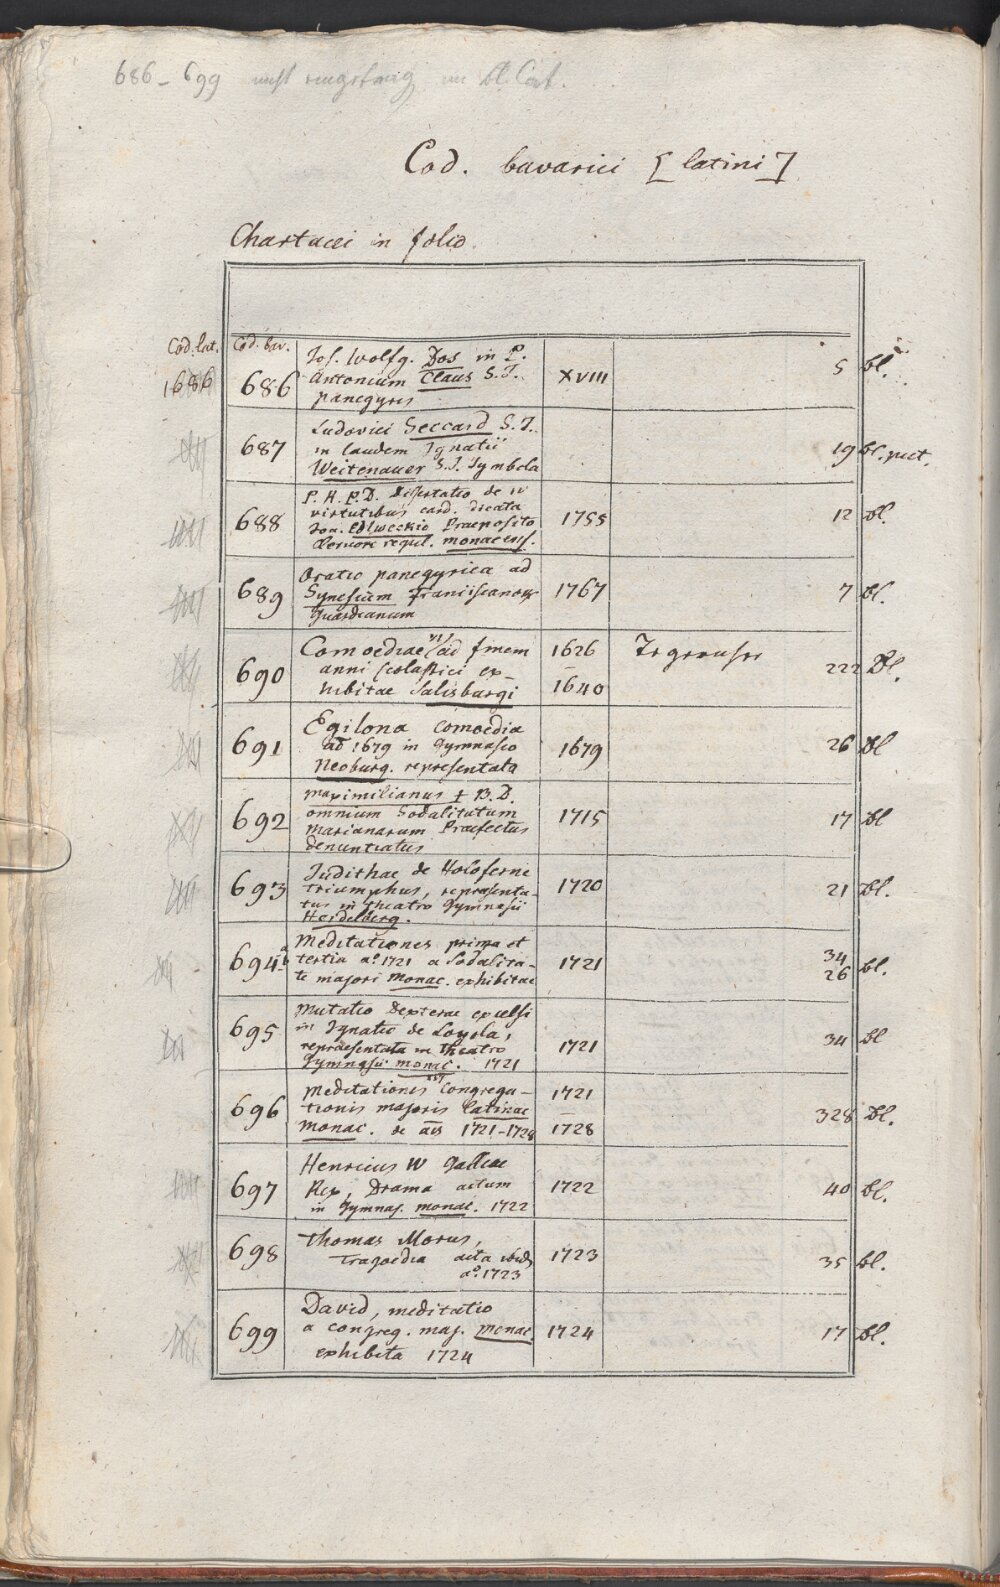 686 - 699 nicht eingetrag. im bl. Cat.
Cod. bavarici [latini]
Chartacei in folio
Cod. lat. Cod. bav.
1686 686 Jos. Wolfg. Dos in P. Antonium Claus S.J. panegyris XVIII 5 bl.
687 Ludovici Seccard S.J. in laudem Ignatii Weitenauer S.J. Symbola 19 bl. pict.
688 P. H. P. D. Dissertatio de IV virtutibus card. dicata Joa. Edlweckio Praeposito Canon. regul. monacens. 1755 12 bl.
689 Oratio panegyrica ad Synesium Franciscanor. Guardianum 1767 7 bl.
690 Comoediae VI ad finem anni scolastici exhibitae Salisburgi 1626 – 1640 Tegernsee 222 Bl.
691 Egilona comoedia aō 1679 in Gymnasio Neoburg. representata 1679 26 Bl
692 Maximilianus + B. D. omnium Sodalitatum Marianarum Praefectus denuntiatus 1715 17 Bl
693 Judithae de Holoferne triumphus, repraesentatus in theatro Gymnasii Heidelberg. 1720 21 Bl.
694 a b Meditationes prima et tertia aº. 1721 a Sodalitate majori Monac. exhibitae 1721 34 26 bl.
695 Mutatio Dexterae excelsi in Ignatio de Loyola, repraesentata in theatro Gymnasii monac. 1721 1721 34 bl
696 Meditationes Congregationis majoris latinae Monac. de aīs 1721-1728 1721 – 1728 328 Bl.
697 Henricus IV Galliae Rex, Drama actum in Gymnas. monac. 1722 1722 40 bl.
698 Thomas Morus, Tragoedia acta ibid. aº. 1723 1723 35 bl.
699 David, meditatio a congreg. maj. monac. exhibita 1724 1724 17 bl.